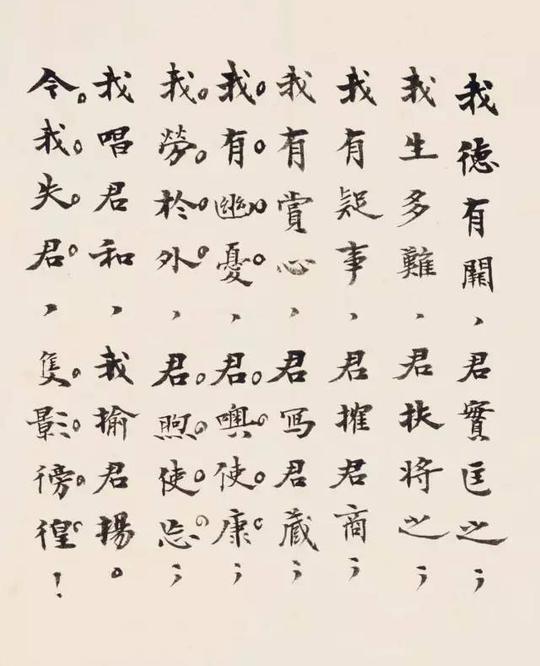 我德有闕，君實匡之；
我生多難，君扶將之；
我有疑事，君搉君商；
我有賞心，君冩君藏；
我有幽憂，君噢使康；
我勞於外，君煦使忘；
我唱君和，我揄君揚。
今我失君，隻影徬徨！